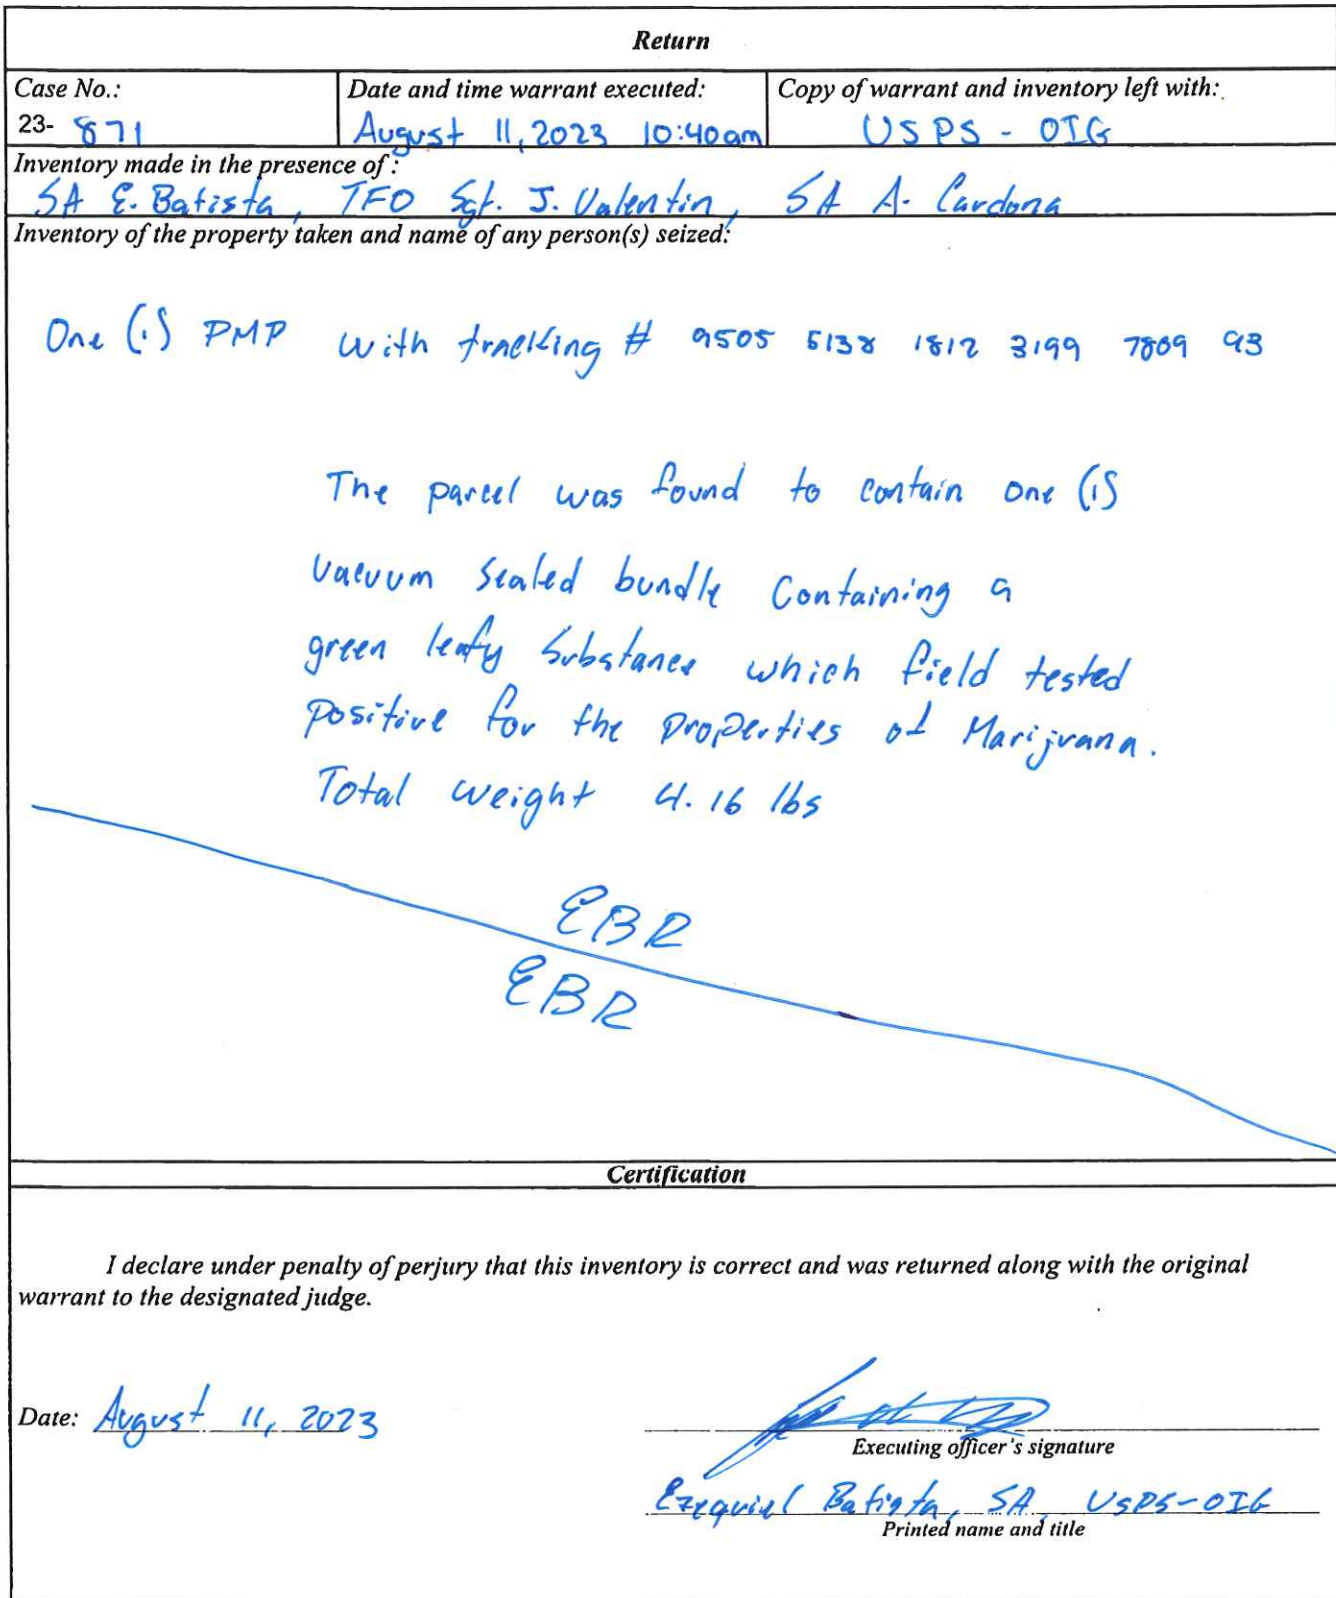 Return
Case No.: Date and time warrant executed: Copy of warrant and inventory left with:
23- 871 August 11, 2023 10:40am USPS - OIG
Inventory made in the presence of :
SA E. Batista, TFO Sgt. J. Valentin, SA A. Cardona
Inventory of the property taken and name of any person(s) seized:
One (1) PMP with tracking # 9505 5138 1812 3199 7809 93
The parcel was found to contain one (1)
vacuum sealed bundle containing a
green leafy substance which field tested
positive for the properties of Marijuana.
Total weight 4.16 lbs
EBR
EBR
Certification
I declare under penalty of perjury that this inventory is correct and was returned along with the original
warrant to the designated judge.
Date: August 11, 2023
Executing officer's signature
Ezequiel Batista, SA, USPS-OIG
Printed name and title